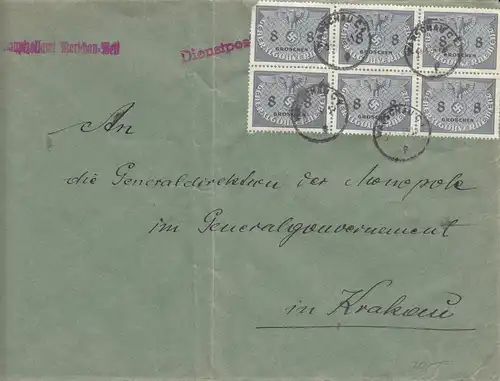 Hauptzollamt Warschau-West
Dienstpost
8 8 8 8 8 8
GROSCHEN GROSCHEN GROSCHEN
8 8 8 8 8 8
GROSCHEN GROSCHEN GROSCHEN
WARSCHAU C1
An
die Generaldirektion der Monopole
im Generalgouvernement
in Krakau